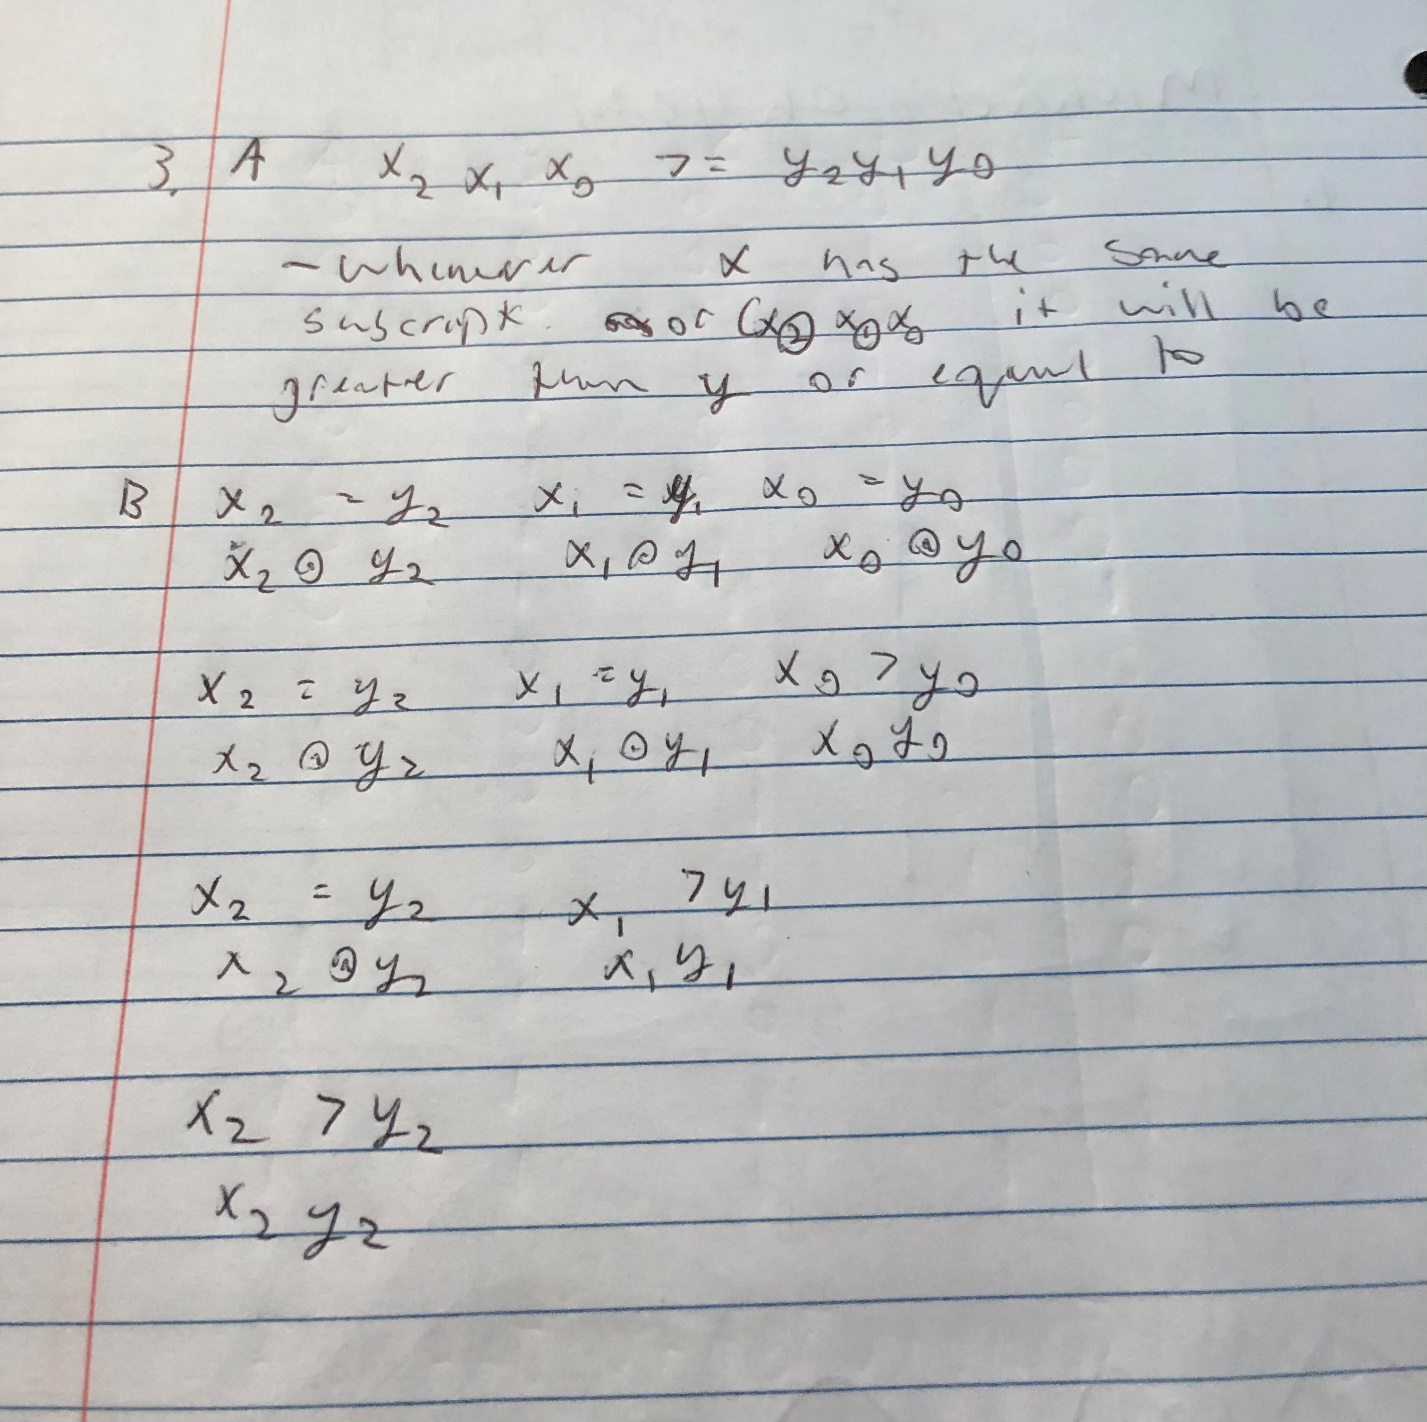 3. A x₂ x₁ x₀ >= y₂y₁y₀
- whenever x has the same
subscript. or (x₂ x₁ x₀ it will be
greater than y or equal to
B x₂ = y₂ x₁ = y₁ x₀ = y₀
x₂ ⊙ y₂ x₁ ⊙ y₁ x₀ ⊙ y₀
x₂ = y₂ x₁ = y₁ x₀ > y₀
x₂ ⊙ y₂ x₁ ⊙ y₁ x₀ y₀
x₂ = y₂ x₁ > y₁
x₂ ⊙ y₂ x₁ y₁
x₂ > y₂
x₂ y₂